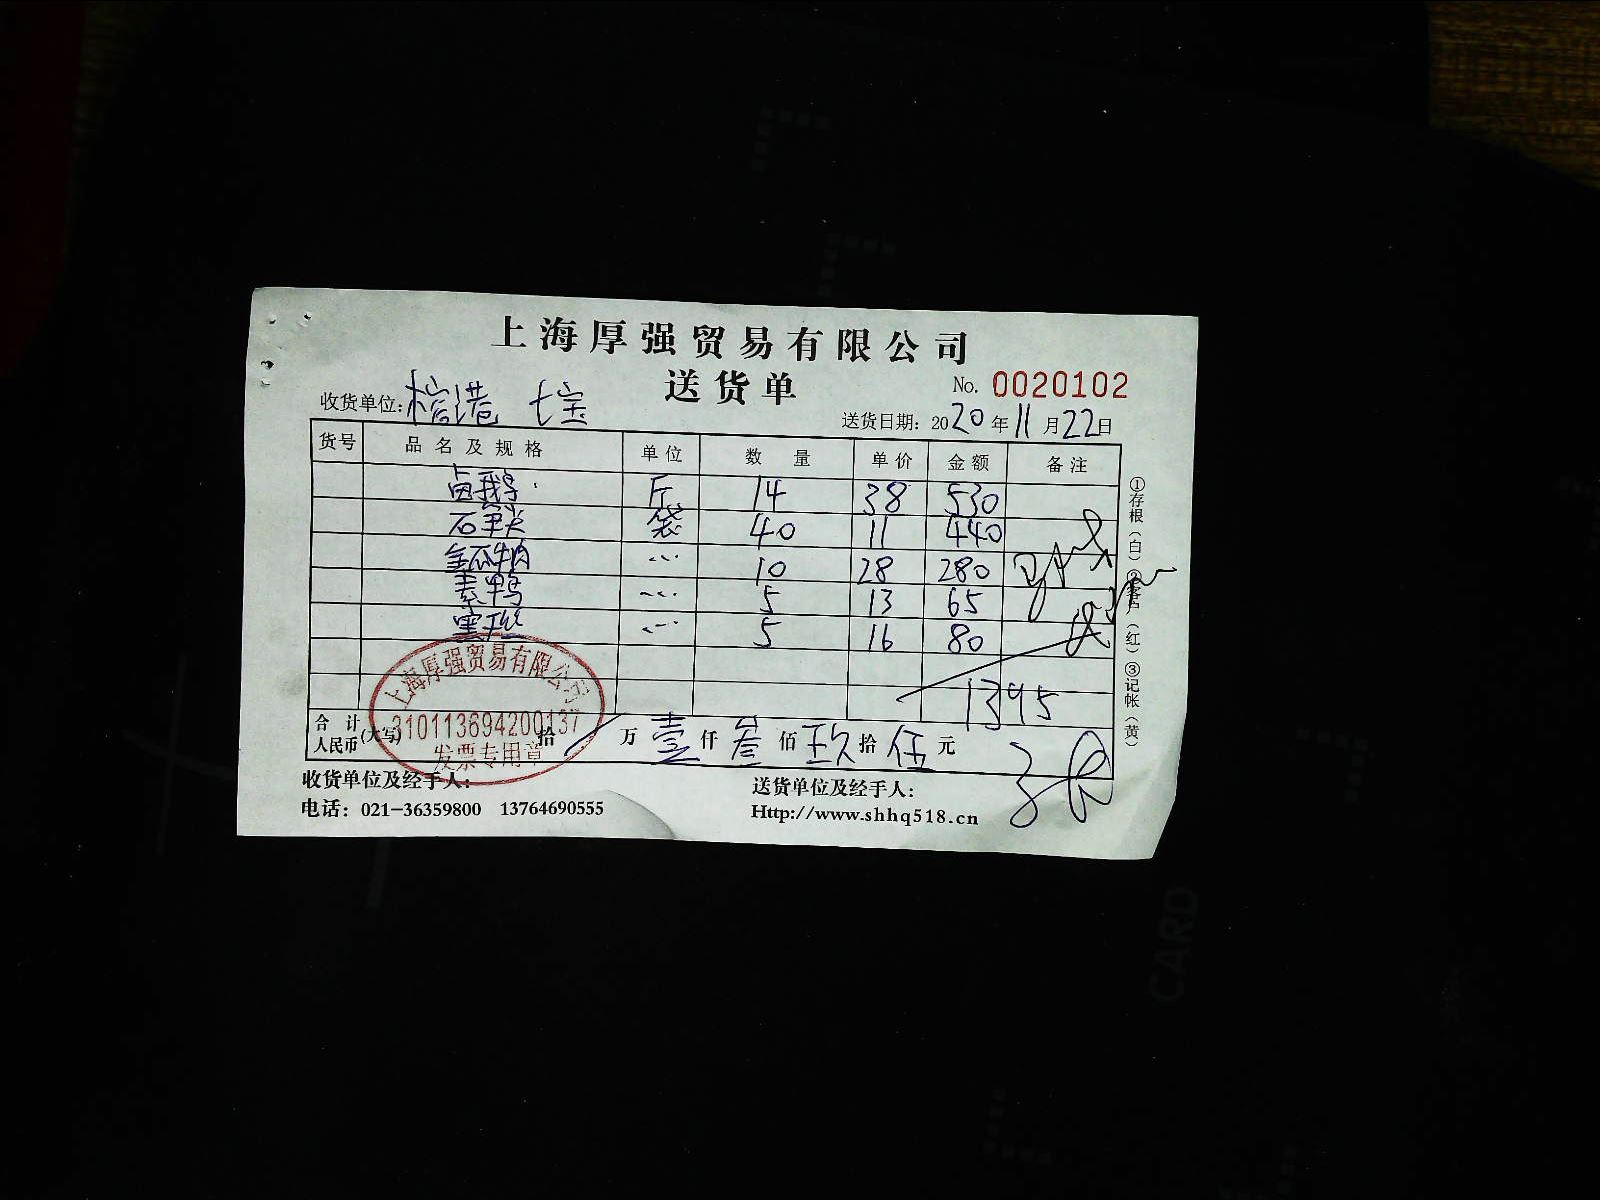 上海厚强贸易有限公司
送货单
No. 0020102
收货单位: 七宝
送货日期: 2020年11月22日
货号 品名及规格 单位 数量 单价 金额 备注
卤鹅 斤 14 38 530
石 袋 40 11 440
金瓜牛肉 〃 10 28 280
素鸭 〃 5 13 65
〃 5 16 80
1395
合计人民币(大写) 拾 / 万 壹 仟 叁 佰 玖 拾 伍 元
上海厚强贸易有限公司
310113694200137
发票专用章
收货单位及经手人:
送货单位及经手人:
电话: 021-36359800 13764690555
Http://www.shhq518.cn
①存根(白)②客户(红)③记帐(黄)
CARD